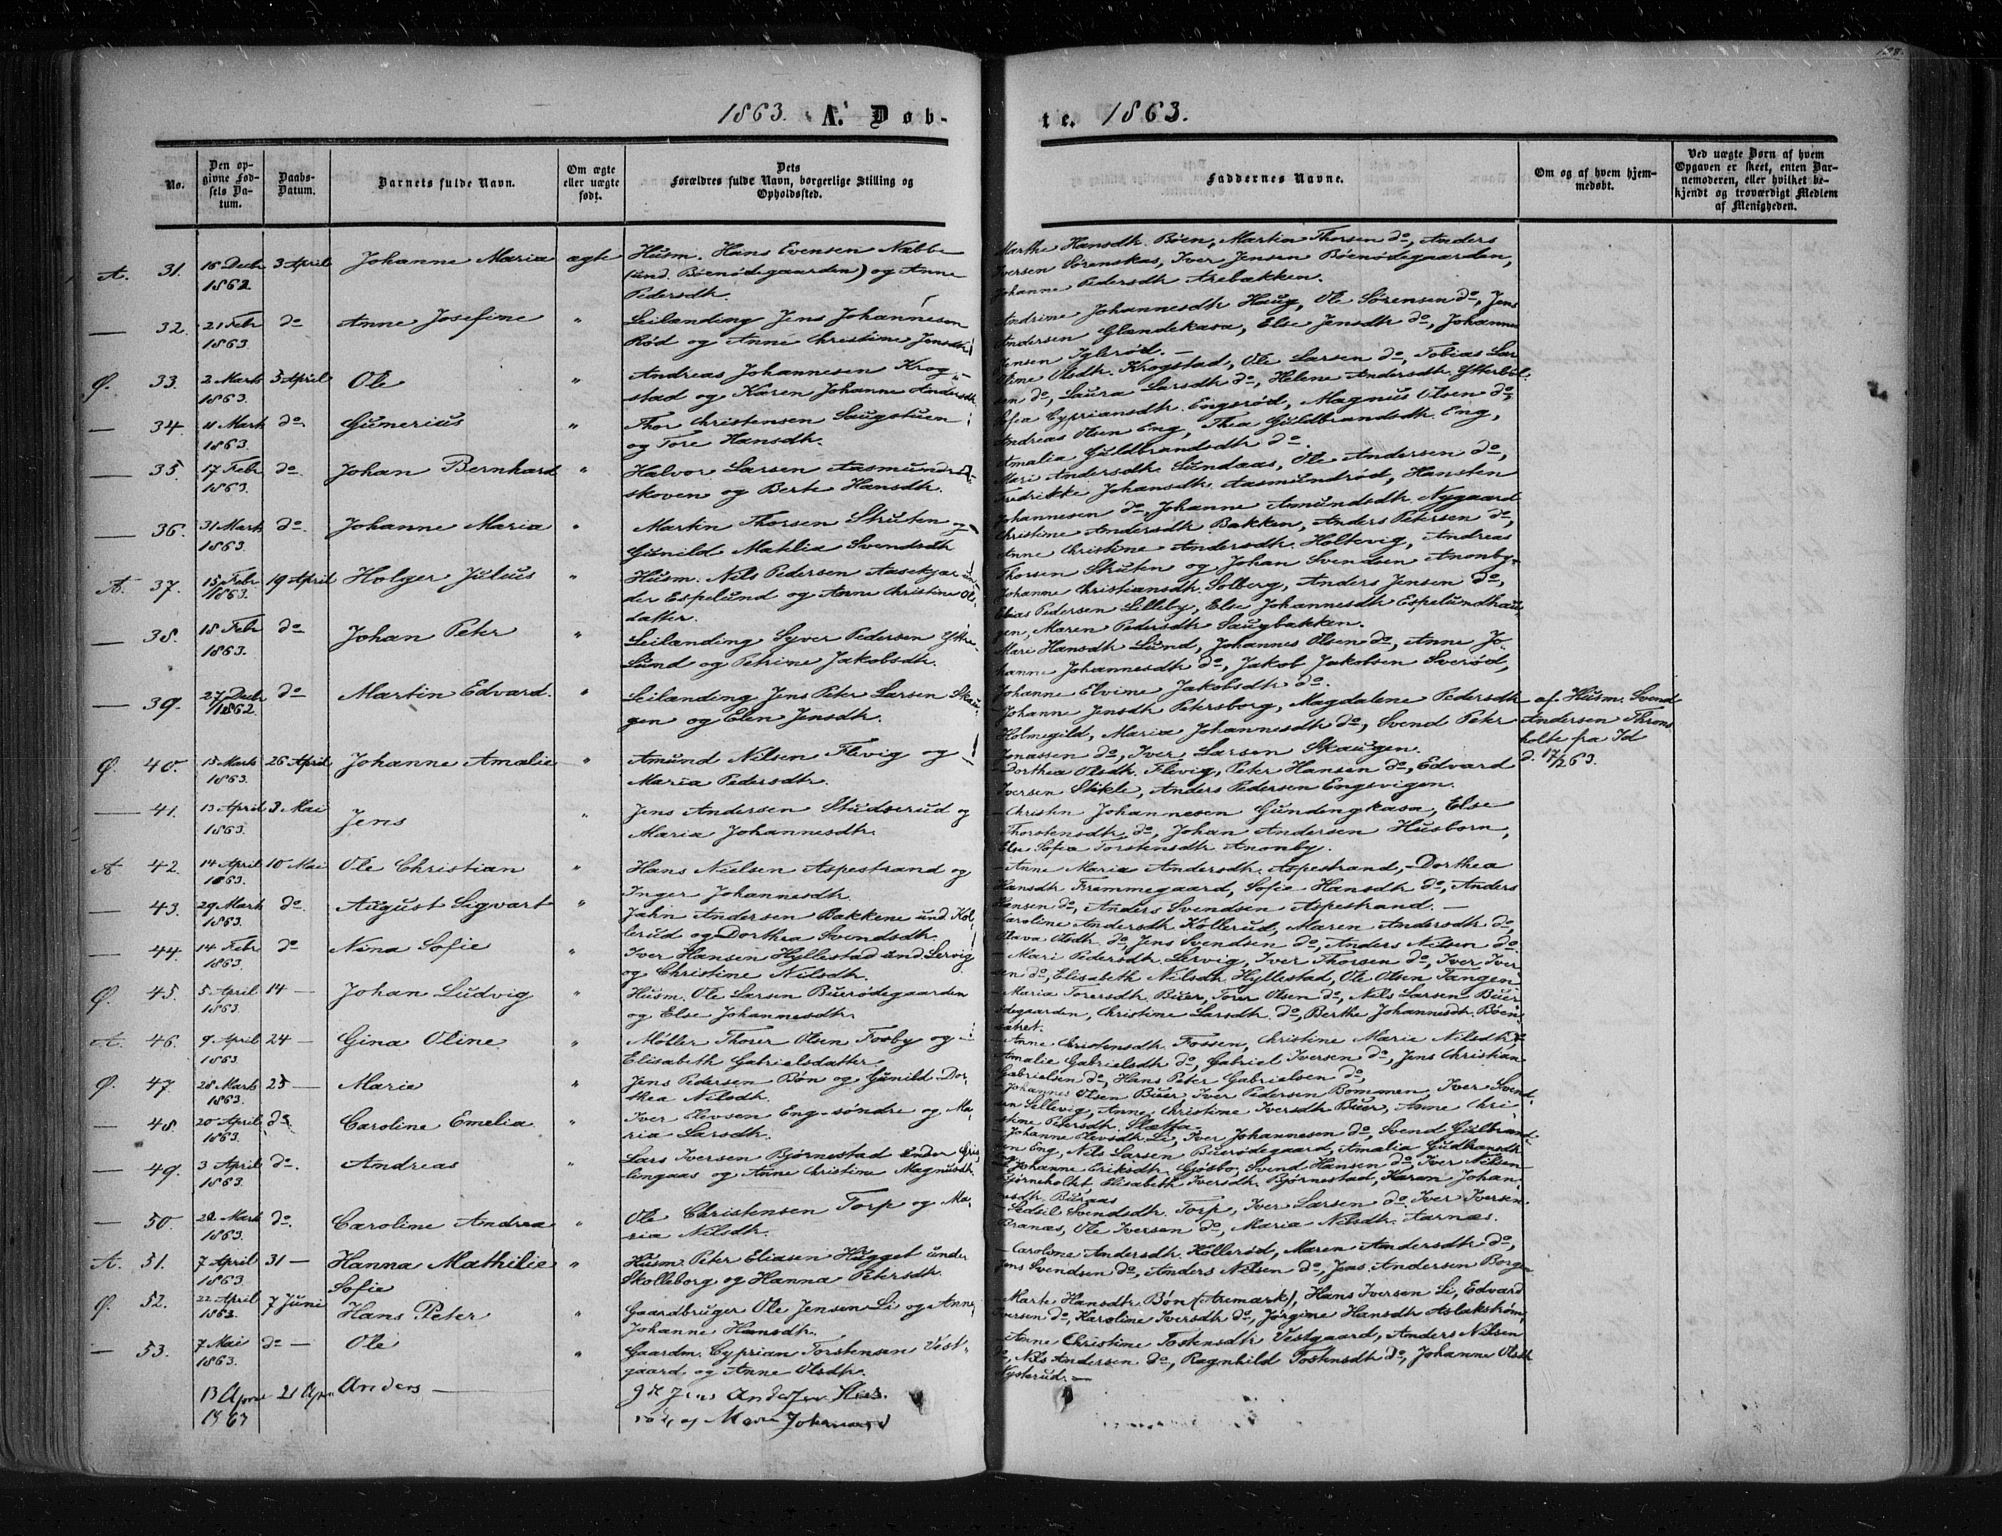 1863. A. Døb-
te. 1863.
No.
Den op-
givne Fød-
sels Da-
tum.
Daabs-
Datum.
Barnets fulde Navn.
Om ægte
eller uægte
født.
Dets
Forældres fulde Navn, borgerlige Stilling og
Opholdssted.
Faddernes Navne.
Om og af hvem hjem-
medøbt.
Ved uægte Børn af hvem
Opgaven er skeet, enten Bar-
nemoderen, eller hvilket be-
kjendt og troværdigt Medlem
af Menigheden.
A. 31. 16 Decbr 3 April Johanne Maria ægte Husm. Hans Evensen Nabbe
1862 (und. Bøenødegaarden) og Anne
Pedersdtr.
Marthe Hansdtr. Bøen, Martin Thorsen do, Anders
Iversen Sørenskas, Iver Jensen Bøenødegaarden,
Johanne Pedersdtr Arebakken.
— 32. 21 Febr do Anne Josefine " Leilænding Jens Johannesen
1863. Rød og Anne Christine Jensdtr
Andrine Johannesdtr Haug, Ole Sørensen do, Jens
Andersen Glendekasa, Else Jensdtr do, Johannes
Jensen Iglerød. —
Ø. 33. 2 Marts 5 April Ole " Andreas Johannesen Krog-
1863. stad og Karen Johanne Andersdtr
Oline Olsdtr. Krogstad, Ole Larsen do, Tobias Lar
sen do, Laura Larsdtr do, Helene Andersdtr. Ytterbøl
— 34. 11 Marts do. Gumerius " Thor Christensen Saugstuen
1863. og Tore Hansdtr.
Sofia Cypriansdtr. Engerød, Magnus Olsen do,
Andreas Olsen Eng, Thea Guldbrandsdtr. Eng,
Amalia Guldbrandsdtr do.
— 35. 17 Febr do. Johan Bernhard " Halvor Larsen Aasmundrød-
1863. skoven og Berte Hansdtr.
Mari Andersdtr Sundaas, Ole Andersen do,
Fredrikke Johansdtr. Aasmundrød, Hansten
Johannesen do, Johanne Amundsdtr Nygaard
— 36. 31 Marts do Johanne Maria " Martin Thorsen Struten og
1863. Gunild Mathia Svendsdtr
Christine Andersdtr Bakken, Anders Petersen do,
Anne Christine Andersdtr. Holtevig, Andreas
Thorsen Struten og Johan Svendsen Anonby.
A. 37. 15 Febr 19 April Holger Julius " Husm. Nils Pedersen Aasekjær un-
1863. der Espelund og Anne Christine Ols-
datter.
Johanne Christiansdtr. Solberg, Anders Jensen do,
Elias Pedersen Lilleby, Else Johannesdtr Espelundhau
gen, Maren Pedersdtr Saugbakken.
— 38. 18 Febr do Johan Peter " Leilænding Syver Pedersen Ytre-
1863. Lund og Petrine Jakobsdtr.
Mari Hansdtr Lund, Johannes Olsen do, Anne Jo-
hanne Johannesdtr do, Jakob Jakobsen Sverød,
Johanne Elvine Jakobsdtr do.
— 39. 27 Decbr do Martin Edvard. " Leilænding Jens Peter Larsen Skau-
1862 gen og Elen Jensdtr.
Johann Jensdtr Petersborg, Magdalene Pedersdtr
Holmegild, Maria Johannesdtr do, Svend Peter
Jonassen do, Iver Larsen Skaugen.
af Husm. Svend
Andersen Throns
holte fra Id
d. 17/2 63.
Ø. 40. 15 Marts 26 April Johanne Amalie " Amund Nilsen Flevig og
1863. Maria Pedersdtr.
Dorthea Olsdtr. Flevig, Peter Hansen do, Edvard
Iversen Stikle, Anders Pedersen Engsvigen.
— 41. 13 April 3 Mai Jens " Jens Andersen Studserud og
1863. Maria Johannesdtr.
Christen Johannesen Gundengkasa, Else
Thorstensdtr do, Johan Andersen Husborn,
Else Sofia Torstensdtr Anonby.
A 42. 14 April 10 Mai Ole Christian " Hans Nielsen Aspestrand og
1863. Inger Johannesdtr.
Anne Maria Andersdtr. Aspestrand, Dorthea
Hansdtr Frammegaard, Sofie Hansdtr do, Anders
Hansen do, Anders Svendsen Aspestrand. —
— 43. 29 Marts do. August Sigvart " Jahn Andersen Bakkene und Kol-
1863. lerud og Dorthea Svendsdtr.
Caroline Andersdtr Kollerud, Maren Andersdtr do,
Olava Olsdtr. do, Jens Svendsen do, Anders Nilsen do.
— 44. 14 Febr do Nina Sofie " Iver Hansen Hyllestad und Lervig
1863. og Christine Nilsdtr.
Mari Pedersdtr. Lervig, Iver Thorsen do, Iver Iver
sen do, Elisabeth Nilsdtr. Hyllestad, Ole Olsen Tangen
Ø. 45. 5. April 14 — Johan Ludvig " Husm. Ole Larsen Buerødegaarden
1863. og Else Johannesdtr.
Maria Torersdtr. Buer, Torer Olsen do, Nils Larsen Buer
ødegaarden, Christine Larsdtr. do, Berthe Johannesdtr. Bøen-
sætret.
A. 46. 9. April 24 — Gina Oline. " Møller Thorer Olsen Fosby og
1863 Elisabeth Gabrielsdatter.
Anne Christensdtr. Fossen, Christine Marie Nilsdtr do,
Amalie Gabrielsdtr do, Gabriel Iversen do, Jens Christian
Gabrielsen do, Hans Peter Gabrielsen do,
Ø. 47. 28 Marts 25 — Marie " Jens Pedersen Bøn og Gunild Dor-
1863. thea Nilsdtr.
Johannes Olsen Buer Iver Pedersen Bommen, Iver Svend-
sen Lillevig, Anne Christine Iversdtr Buer, Anne Chri-
stine Petersdtr. Sletta.
— 48. 20 April do Caroline Emelia " Iver Elevsen Eng-søndre og Ma-
1863. ria Larsdtr.
Johanne Elevsdtr. Li, Iver Johannesen do, Svend Gulbrand-
sen Eng, Nils Larsen Buerødegaard, Amalia Gudbrandsdtr
— 49. 3 April do. Andreas " Lars Iversen Bjørnestad under Gris
1863. lingaas og Anne Christine Magnusdtr
Johanne Eriksdtr. Gjøsbo, Svend Hansen do, Iver Nilsen
Bjørneholtet, Elisabeth Iversdtr. Bjørnestad, Karen Johan-
nesdtr. Buraas
— 50. 28 Marts do. Caroline Andrea " Ole Christensen Torp og Ma-
1863. ria Nilsdtr.
Svendsdtr. Torp, Iver Larsen do, Iver Iversen
Branæs, Ole Iversen do, Maria Nilsdtr. Aarnæs.
A. 51. 7 April 31 — Hanna Mathilie " Husm. Peter Eliasen Hugget under
1863. Sofie Skolleborg og Hanna Petersdtr.
Caroline Andersdtr. Hollerød, Maren Andersdtr do,
Jens Svendsen do, Anders Nilsen do, Jens Andersen Borge
Ø. 52. 22 April 7 Juni Hans Peter " Gaardbruger Ole Jensen Li og Anne
1863. Johanne Hansdtr.
Marte Hansdtr Bøn (Aremark), Hans Iversen Li, Edvard
Iversen do, Karoline Iversdtr do, Jørgine Hansdtr Aslakstrøm,
— 53. 7 Mai do — Ole " Gaardm. Cyprian Torstensen Vest-
1863. gaard og Anne Olsdtr.
Anne Christine Tostensdtr Vestgaard, Anders Nilsen
do, Nils Andersen do, Ragnhild Tostensdtr do, Johanne Olsdtr
Nysterud. —
13 April 21 Apr. Anders —
1863